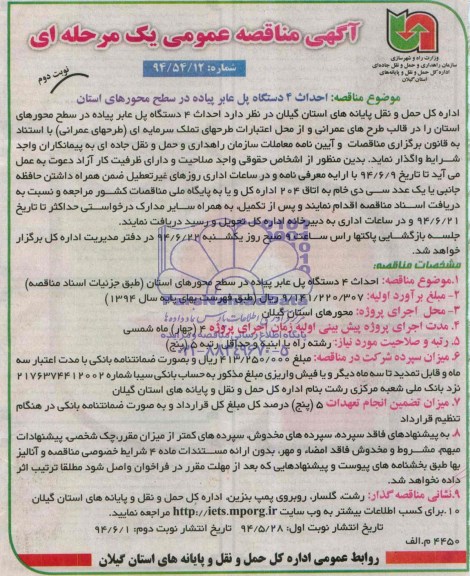 آگهی مناقصه عمومی یک مرحله ای
وزارت راه و شهرسازی
سازمان راهداری و حمل و نقل جاده‌ای
اداره کل حمل و نقل و پایانه‌های
استان گیلان
شماره: ۹۴/۵۴/۱۲
نوبت دوم
موضوع مناقصه: احداث ۴ دستگاه پل عابر پیاده در سطح محورهای استان
اداره کل حمل و نقل پایانه های استان گیلان در نظر دارد احداث ۴ دستگاه پل عابر پیاده در سطح محورهای
استان را در قالب طرح های عمرانی و از محل اعتبارات طرحهای تملک سرمایه ای (طرحهای عمرانی) با استناد
به قانون برگزاری مناقصات و آیین نامه معاملات سازمان راهداری و حمل و نقل جاده ای به پیمانکاران واجد
شرایط واگذار نماید. بدین منظور از اشخاص حقوقی واجد صلاحیت و دارای ظرفیت کار آزاد دعوت به عمل
می آید تا تاریخ ۹۴/۶/۹ با ارایه معرفی نامه و در ساعات اداری روزهای غیرتعطیل ضمن همراه داشتن حافظه
جانبی یا یک عدد سی دی خام به اتاق ۲۰۴ اداره کل و یا به پایگاه ملی مناقصات کشور مراجعه و نسبت به
دریافت اسناد مناقصه اقدام نمایند و پس از تکمیل، به همراه سایر مدارک درخواستی حداکثر تا تاریخ
۹۴/۶/۲۱ و در ساعات اداری به دبیرخانه اداره کل تحویل و رسید دریافت نمایند.
جلسه بازگشایی پاکتها راس ساعت ۹ صبح روز یکشنبه ۹۴/۶/۲۲ در دفتر مدیریت اداره کل برگزار
خواهد شد.
مشخصات مناقصه:
۱.موضوع مناقصه: احداث ۴ دستگاه پل عابر پیاده در سطح محورهای استان (طبق جزئیات اسناد مناقصه)
۲- مبلغ برآورد اولیه: ۹/۱۴۱/۲۲۰/۳۰۷ ریال (طبق فهرست بهای پایه سال ۱۳۹۴)
۳- محل اجرای پروژه: محورهای استان گیلان
۴. مدت اجرای پروژه پیش بینی اولیه زمان اجرای پروژه ۴ (چهار) ماه شمسی
۵. رتبه و صلاحیت مورد نیاز: رشته راه یا ابنیه و حداقل رتبه ۵ (پنج)
۶. میزان سپرده شرکت در مناقصه: ۴۱۳/۲۵۰/۰۰۰ ریال و بصورت ضمانتنامه بانکی با مدت اعتبار سه
ماه و قابل تمدید تا سه ماه دیگر و یا فیش واریزی مبلغ مذکور به حساب بانکی سیبا شماره ۲۱۷۶۳۷۴۴۱۲۰۰۲
نزد بانک ملی شعبه مرکزی رشت بنام اداره کل حمل و نقل و پایانه های استان گیلان
۷. میزان تضمین انجام تعهدات ۵ (پنج) درصد کل مبلغ کل قرارداد و به صورت ضمانتنامه بانکی در هنگام
تنظیم قرارداد
۸- به پیشنهادهای فاقد سپرده، سپرده های مخدوش، سپرده های کمتر از میزان مقرر،چک شخصی پیشنهادات
مبهم، مشروط و مخدوش فاقد امضاء و مهر، بدون ارائه مستندات ماده ۴ شرایط خصوصی مناقصه و آنالیز
بها طبق بخشنامه های پیوست و پیشنهادهایی که بعد از مهلت مقرر در فراخوان واصل شود مطلقا ترتیب اثر
داده نخواهد شد.
۹.نشانی مناقصه گذار: رشت، گلسار، روبروی پمپ بنزین، اداره کل حمل و نقل و پایانه های استان گیلان
۱۰.برای کسب اطلاعات بیشتر به وب سایت http://iets.mporg.ir مراجعه نمایید.
تاریخ انتشار نوبت اول: ۹۴/۵/۲۸ تاریخ انتشار نوبت دوم: ۹۴/۶/۱
۴۴۵۰ م.الف
روابط عمومی اداره کل حمل و نقل و پایانه های استان گیلان